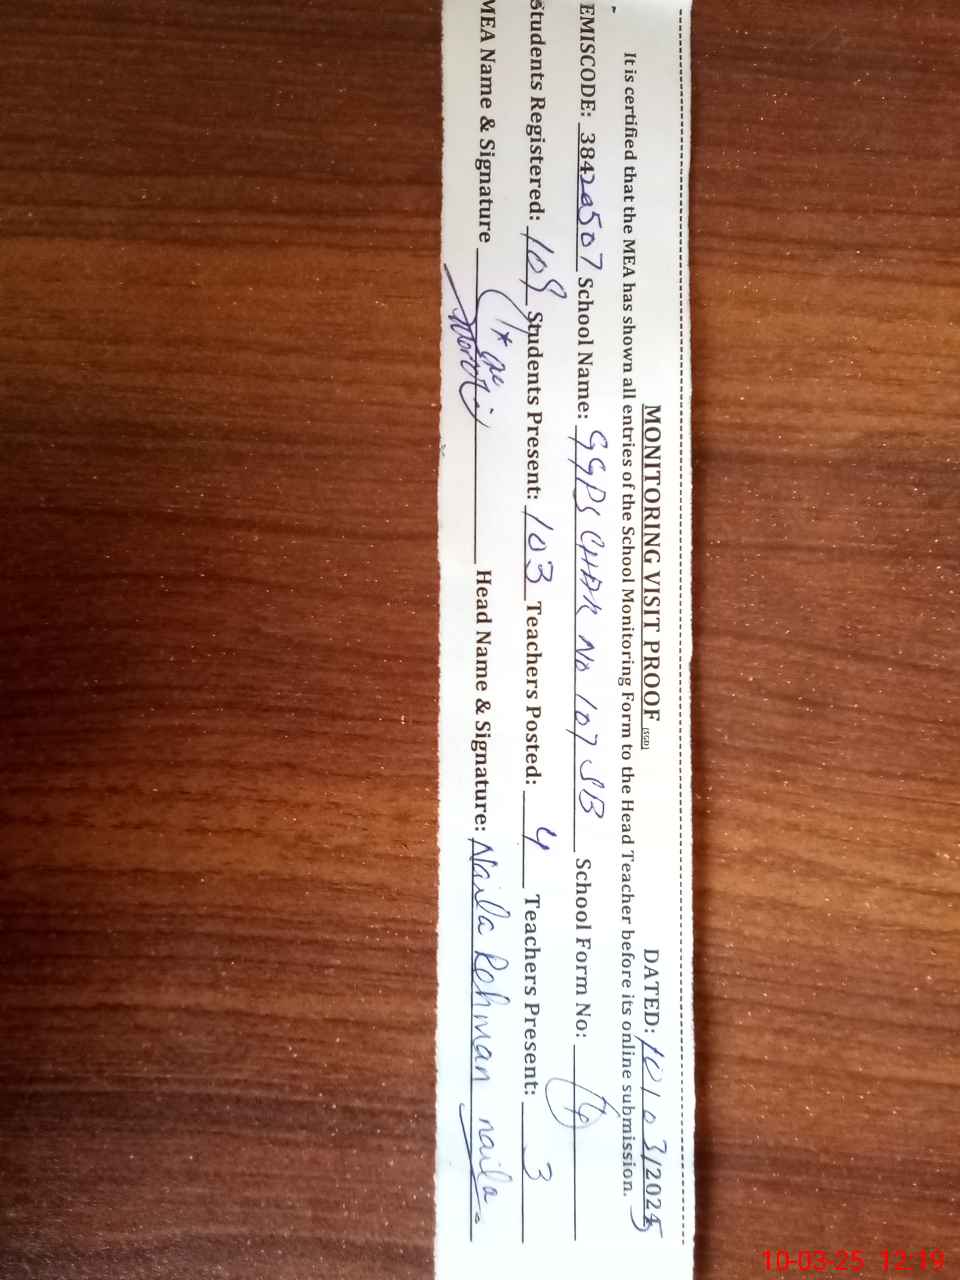 MONITORING VISIT PROOF (SGD) DATED: 10/03/2025
It is certified that the MEA has shown all entries of the School Monitoring Form to the Head Teacher before its online submission.
EMISCODE: 38420507 School Name: GGPS CHAK No 107 SB School Form No:
Students Registered: 108 Students Present: 103 Teachers Posted: 4 Teachers Present: 3
MEA Name & Signature Head Name & Signature: Naila Rehman naila
10-03-25 12:19